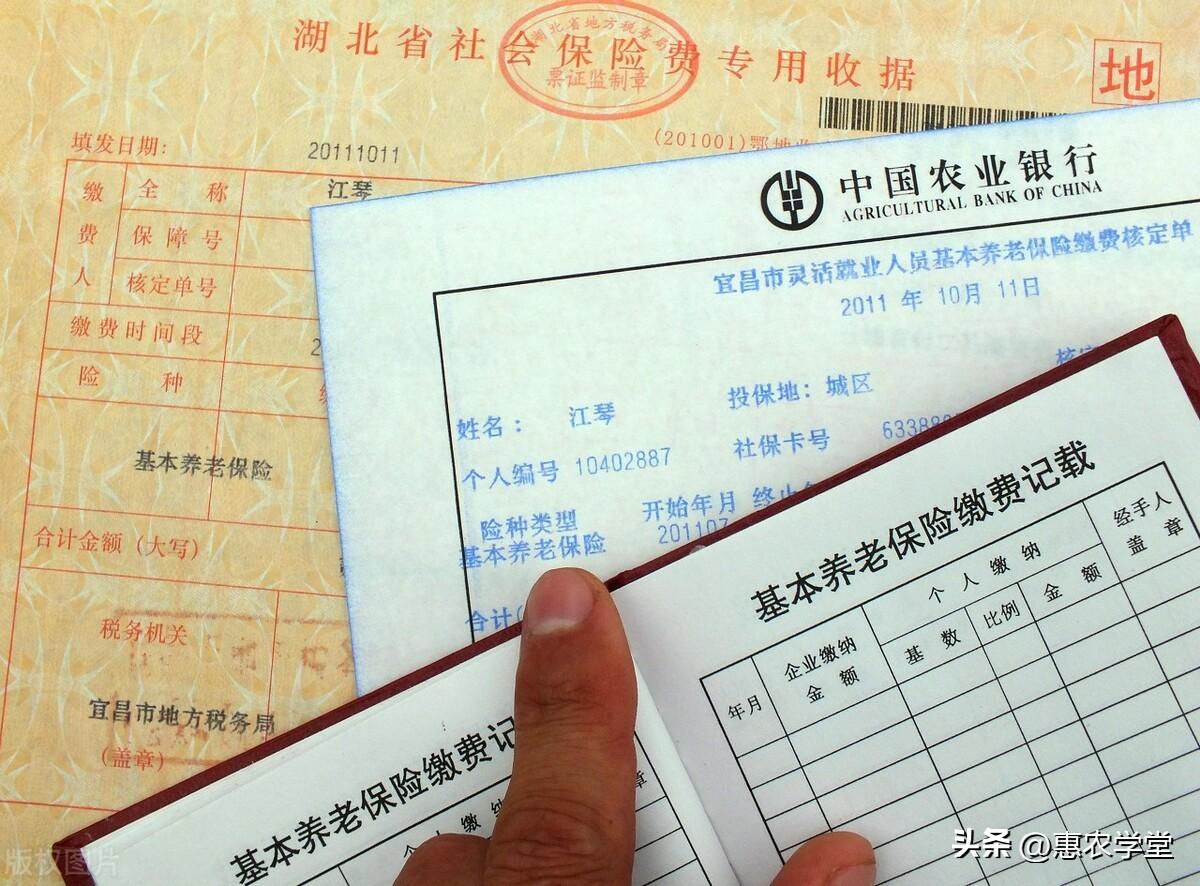 湖北省社会保险费专用收据
湖北省地方税务局
票证监制章
地
填发日期：
20111011
(201001)鄂地
缴费人
全称
江琴
保障号
核定单号
缴费时间段
2
险种
基本养老保险
合计金额（大写）
税务机关
宜昌市地方税务局
（盖章）
中国农业银行
AGRICULTURAL BANK OF CHINA
宜昌市灵活就业人员基本养老保险缴费核定单
2011 年 10月 11日
核定
姓名： 江琴
投保地：城区
个人编号 10402887
社保卡号 63388
险种类型
开始年月 终止
基本养老保险
201107
合计
基本养老保险缴费记载
年月
企业缴纳金额
个人缴纳
基数
比例
金额
经手人盖章
基本养老保险缴费记
个人缴纳
章
版权图片
头条 @惠农学堂